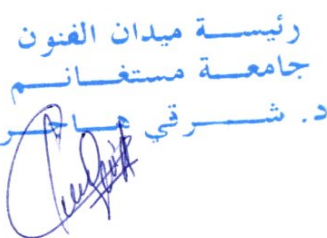 رئيسة ميدان الفنون
جامعة مستغانم
د. شرقي هاجر